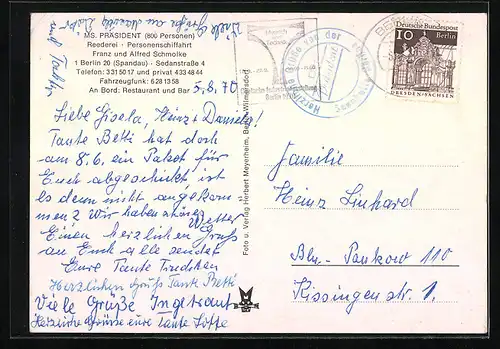 Viele Grüße an
und
MS. PRÄSIDENT (800 Personen)
Reederei · Personenschiffahrt
Franz und Alfred Schmolke
1 Berlin 20 (Spandau) · Sedanstraße 4
Telefon: 331 50 17 und privat 433 48 44
Fahrzeugfunk: 628 13 58
An Bord: Restaurant und Bar
5.8.70
Liebe Gisela, Heinz + Daniela!
Tante Betti hat doch
am 8.6. ein Paket für
Euch abgeschickt ist
es denn nicht angekom-
men? Wir haben
Wetter
Einen herzlichen Gruß
an Euch alle sendet
Eure Tante Trudchen
Herzlichen Gruß Tante Betti
Viele Grüße Ingetraut
Herzliche Grüsse eure Tante
Foto u. Verlag Herbert Meyerheim, Berlin-Wilmersdorf
Berlin
Herzliche Grüße von der
Deutsche Bundespost
10 Berlin
DRESDEN-SACHSEN
Familie
Heinz Linhard
Bln.-Pankow 110
Kissingenstr. 1.